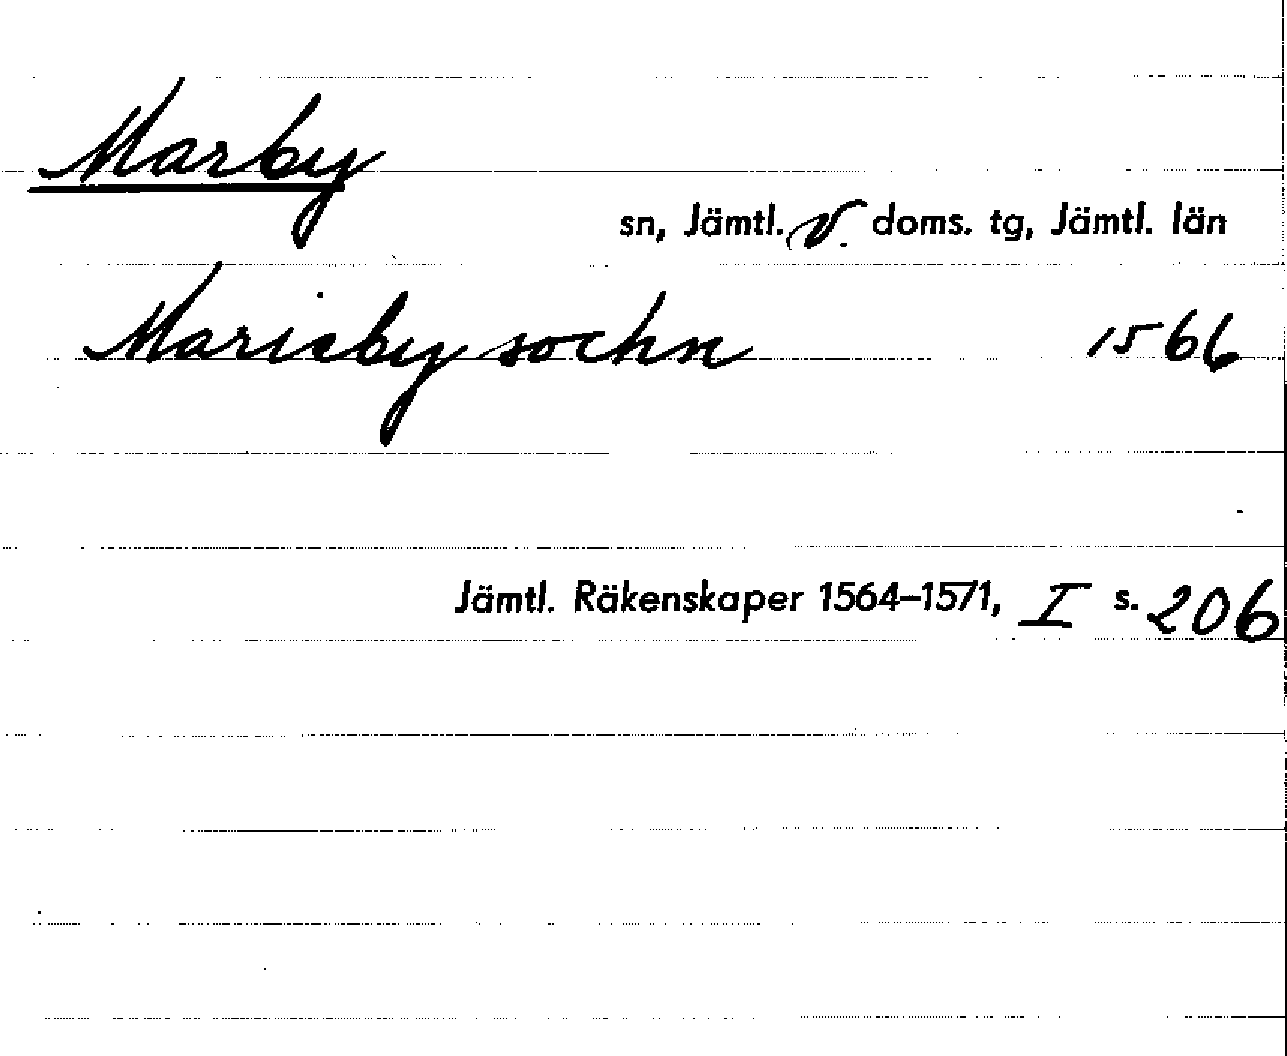 Marby
sn, Jämtl. v. doms. tg, Jämtl. län
Marieby sochn 1566
Jämtl. Räkenskaper 1564–1571, I s. 206